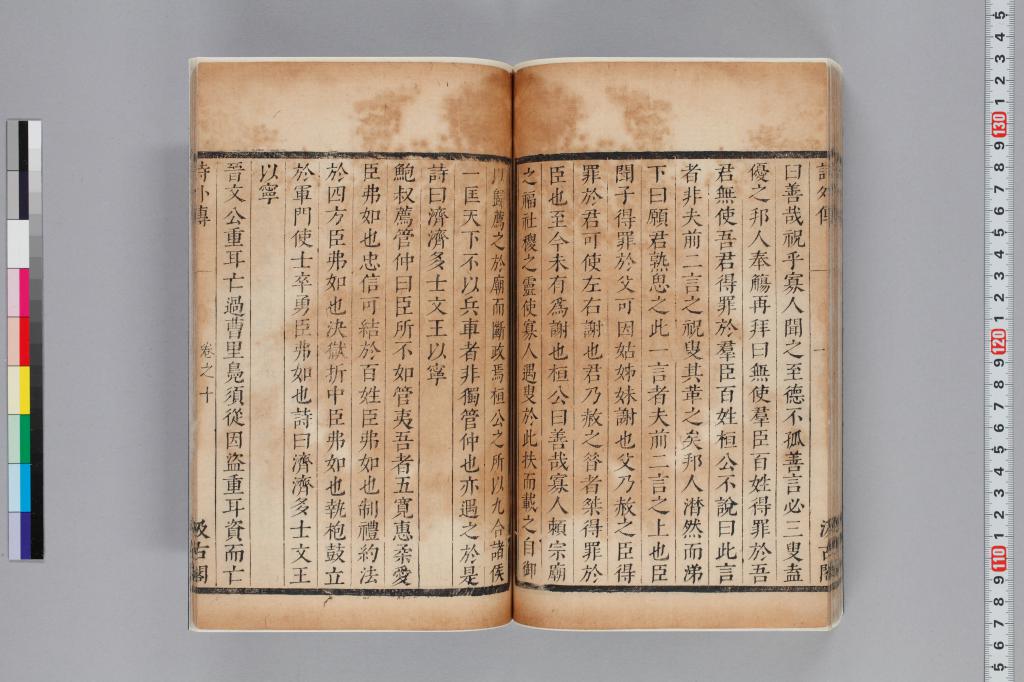 曰善哉祝乎寡人聞之至德不孤善言必三叟盍
優之邦人奉觴再拜曰無使羣臣百姓得罪於吾
君無使吾君得罪於羣臣百姓桓公不說曰此言
者非夫前二言之祝叟其革之矣邦人潸然而涕
下曰願君熟思之此一言者夫前二言之上也臣
聞子得罪於父可因姑姊妹謝也父乃赦之臣得
罪於君可使左右謝也君乃赦之昝者桀得罪於
臣也至今未有爲謝也桓公曰善哉寡人賴宗廟
之福社稷之靈使寡人遇叟於此扶而載之自御
以歸薦之於廟而斷政焉桓公之所以九合諸侯
一匡天下不以兵車者非獨管仲也亦遇之於是
詩曰濟濟多士文王以寧
鮑叔薦管仲曰臣所不如管夷吾者五寬惠柔愛
臣弗如也忠信可結於百姓臣弗如也制禮約法
於四方臣弗如也決獄折中臣弗如也執枹鼓立
於軍門使士卒勇臣弗如也詩曰濟濟多士文王
以寧
晉文公重耳亡過曹里鳧須從因盜重耳資而亡
詩外傳
卷之十
汲古閣